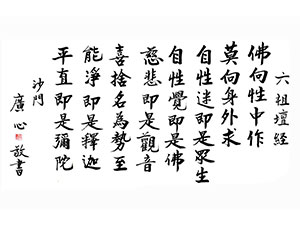 六祖壇經
佛向性中作
莫向身外求
自性迷即是眾生
自性覺即是佛
慈悲即是觀音
喜捨名為勢至
能淨即是釋迦
平直即是彌陀
沙門
廣心敬書